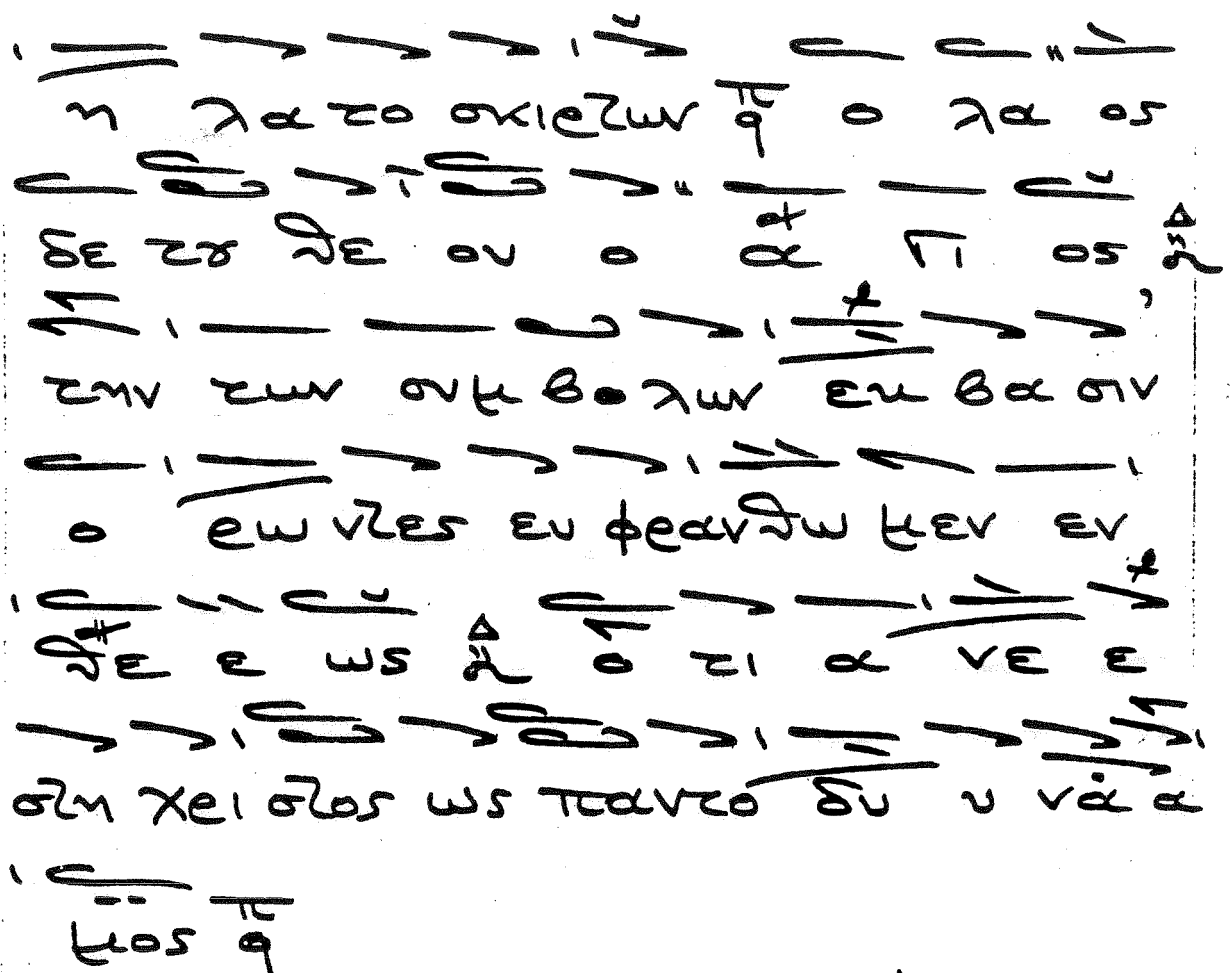 η λα το σκιρτων πα ο λα ος
δε του θε ου ο α γι ος Δι
την των συμ βο λων εκ βα σιν
ο ρω ντες ευ φραν θω μεν εν
θε ε ως Δι ο τι α νε ε
στη χρι στος ως παντο δυ υ να α
μος πα